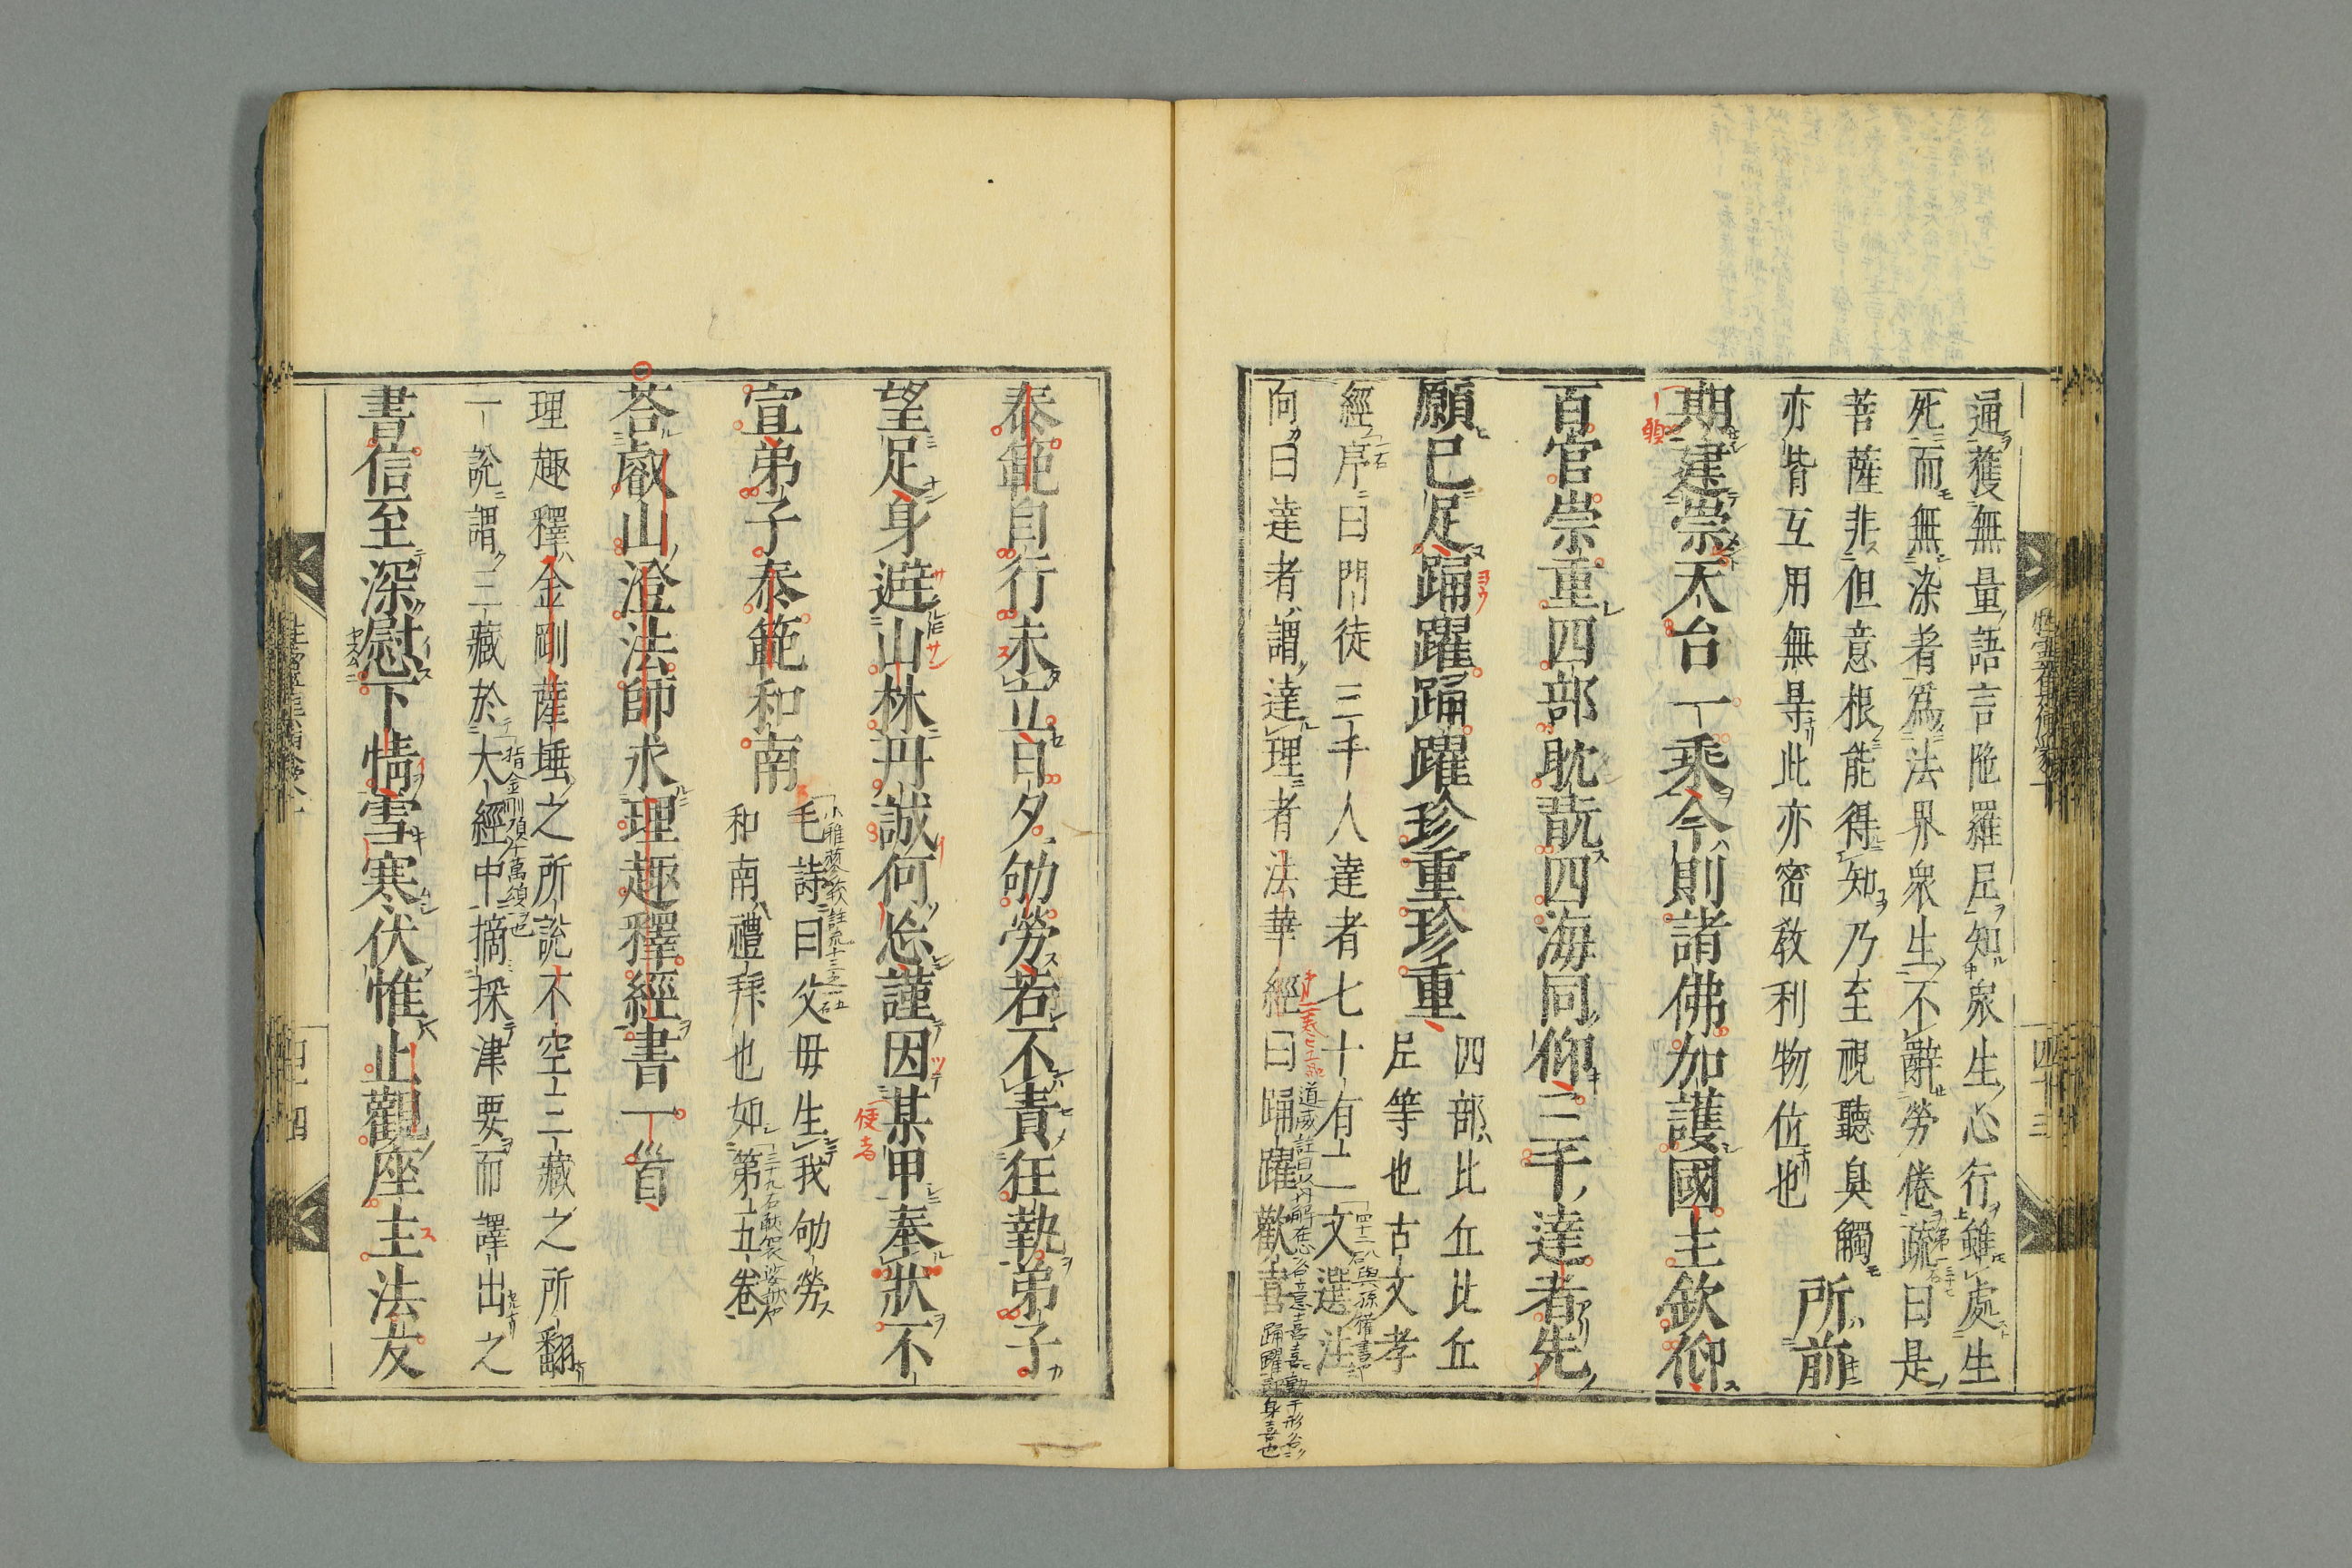 通獲無量語言陁羅尼知衆生心行雖處生
死而無染者爲法界衆生不辭勞倦疏曰是
菩薩非但意根能得知乃至視聽臭觸
亦皆互用無㝵此亦密敎利物位也
所前
期建崇天台一乘今則諸佛加護國主欽仰
百官崇重四部耽翫四海同仰三千達者先
願已足踊躍踊躍珍重珍重
四部比丘比丘
尼等也古文孝
經序曰門徒三千人達者七十有二文選注
向曰達者謂達理者法華經曰踊躍歡喜
泰範自行未立日夕劬勞若不責狂執弟子
望足身遊山林丹誠何忘謹因某甲奉狀不
使者
宣弟子泰範和南
毛詩曰父母生我劬勞
和南禮拜也如第五卷
荅叡山澄法師求理趣釋經書一首
理趣釋金剛薩埵之所說不空三藏之所翻
一說謂三藏於大經中摘採津要而譯出之
書信至深慰下情雪寒伏惟止觀座主法友
四十三